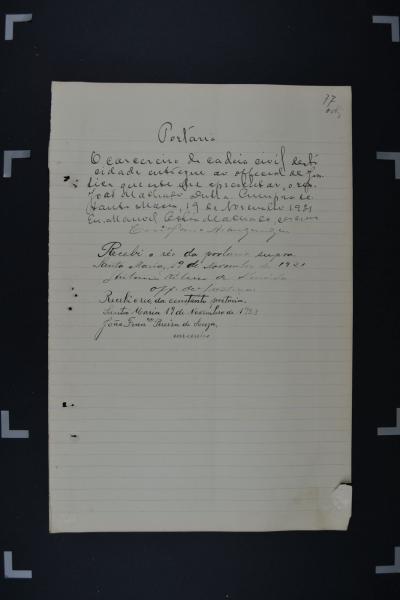 77
Portaria
O carcereiro da cadeia civil desta
cidade entregue ao official de Jus-
tiça que este lhe apresentar, o réo
José Machado Dutra. Cumpra-se.
Santa Maria, 19 de Novembro 1921
Eu, Manoel
Recebi o réo da portaria supra
Santa Maria, 19 de Novembro de 1921
Antonio de Almeida
Off. de justiça
Recebi o réo, da constante portaria.
Santa Maria 19 de Novembro de 1921
João Fran.co Pereira de Souza,
carcereiro